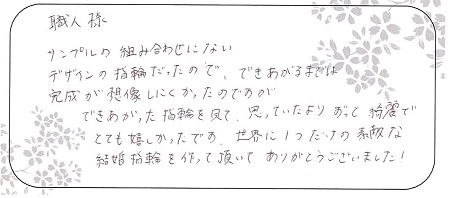 職人様
サンプルの組み合わせにない
デザインの指輪だったので、できあがるまでは
完成が想像しにくかったのですが
できあがった指輪を見て、思っていたよりずっと綺麗で
とても嬉しかったです。世界に1つだけの素敵な
結婚指輪を作って頂いてありがとうございました!